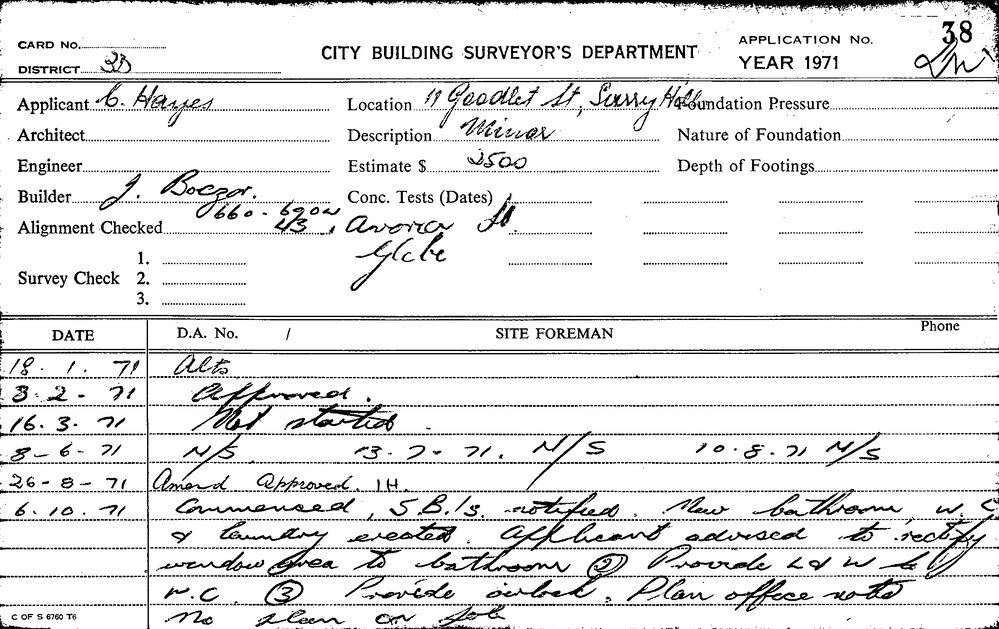 CARD No. CITY BUILDING SURVEYOR'S DEPARTMENT APPLICATION No. 38
DISTRICT 3D YEAR 1971
Applicant C. Hayes Location 19 Goodlet St, Surry Hills Foundation Pressure
Architect Description Minor Nature of Foundation
Engineer Estimate $ 2500 Depth of Footings
Builder J. Boczor. Conc. Tests (Dates)
660-6902
Alignment Checked 43, Avona St.
Glebe
1.
Survey Check 2.
3.
DATE D.A. No. / SITE FOREMAN Phone
18. 1. 71 Alts
3. 2. 71 Approved.
16. 3. 71 Not started.
8-6-71 N/S. 13-7-71. N/S 10.8.71 N/S
26-8-71 Amend Approved. IH.
6.10.71 Commenced, notified. New bathroom, W.C
& laundry erected. Applicant advised to rectify
window area to bathroom ② Provide L & W to
W.C. ③ Provide airlock. Plan office notes
No plan on job
C OF S 6760 T6